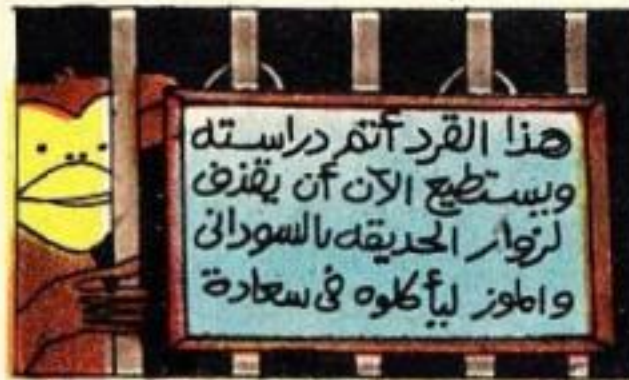 هذا القرد أتم دراسته
ويستطيع الآن أن يقذف
لزوار الحديقه بالسودانى
والموز ليأكلوه فى سعادة